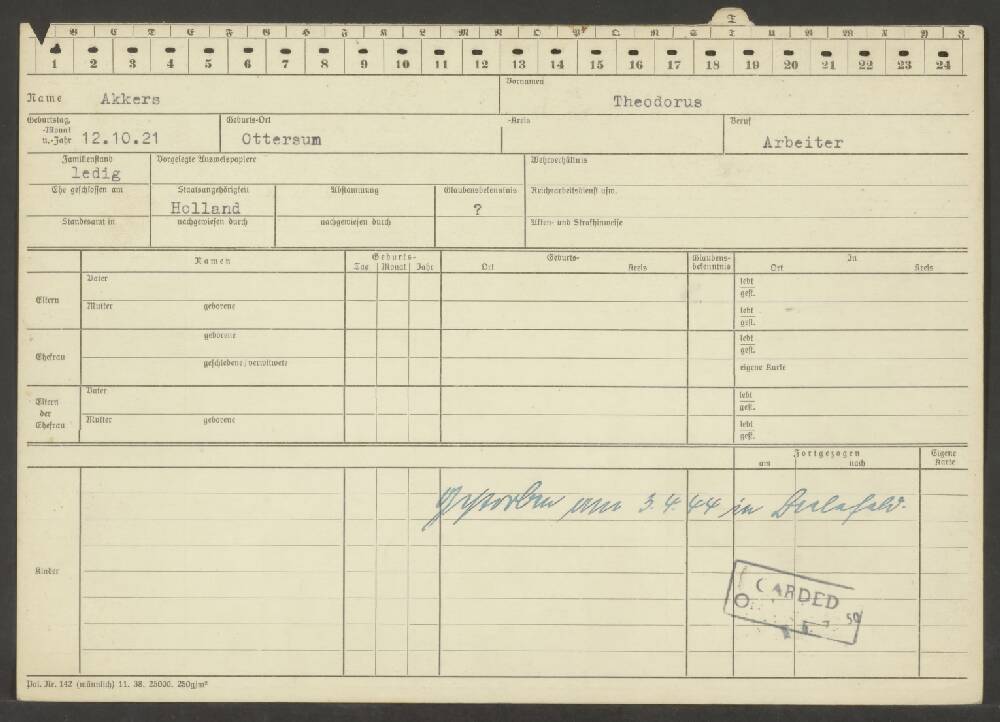 T
B C D E F G H J K L M N O P Q R S T U V W X Y Z
1 2 3 4 5 6 7 8 9 10 11 12 13 14 15 16 17 18 19 20 21 22 23 24
Name Akkers
Vornamen Theodorus
Geburtstag, -Monat u.-Jahr 12.10.21
Geburts-Ort Ottersum
-Kreis
Beruf Arbeiter
Familienstand ledig
Vorgelegte Ausweispapiere
Wehrverhältnis
Ehe geschlossen am
Staatsangehörigkeit Holland
Abstammung
Glaubensbekenntnis ?
Reichsarbeitsdienst usw.
Standesamt in
nachgewiesen durch
nachgewiesen durch
Akten- und Strafhinweise
Namen
Geburts-
Tag Monat Jahr
Geburts-
Ort Kreis
Glaubens-
bekenntnis
In
Ort Kreis
Eltern
Vater
lebt
gest.
Mutter geborene
lebt
gest.
Ehefrau
geborene
lebt
gest.
geschiedene / verwitwete
eigene Karte
Eltern
der
Ehefrau
Vater
lebt
gest.
Mutter geborene
lebt
gest.
Fortgezogen
am nach
Eigene
Karte
Gestorben am 3.4.44 in Bielefeld.
Kinder
CARDED
Pol. Nr. 142 (männlich) 11. 38. 25000. 250g/m²